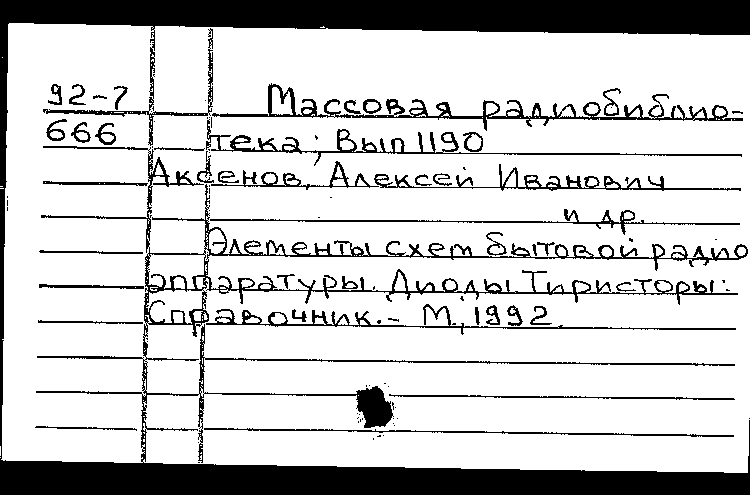 92-7
666
Массовая радиобиблио=
тека; Вып 1190
Аксенов, Алексей Иванович
и др.
Элементы схем бытовой радио
аппаратуры. Диоды. Тиристоры:
Справочник.- М., 1992.